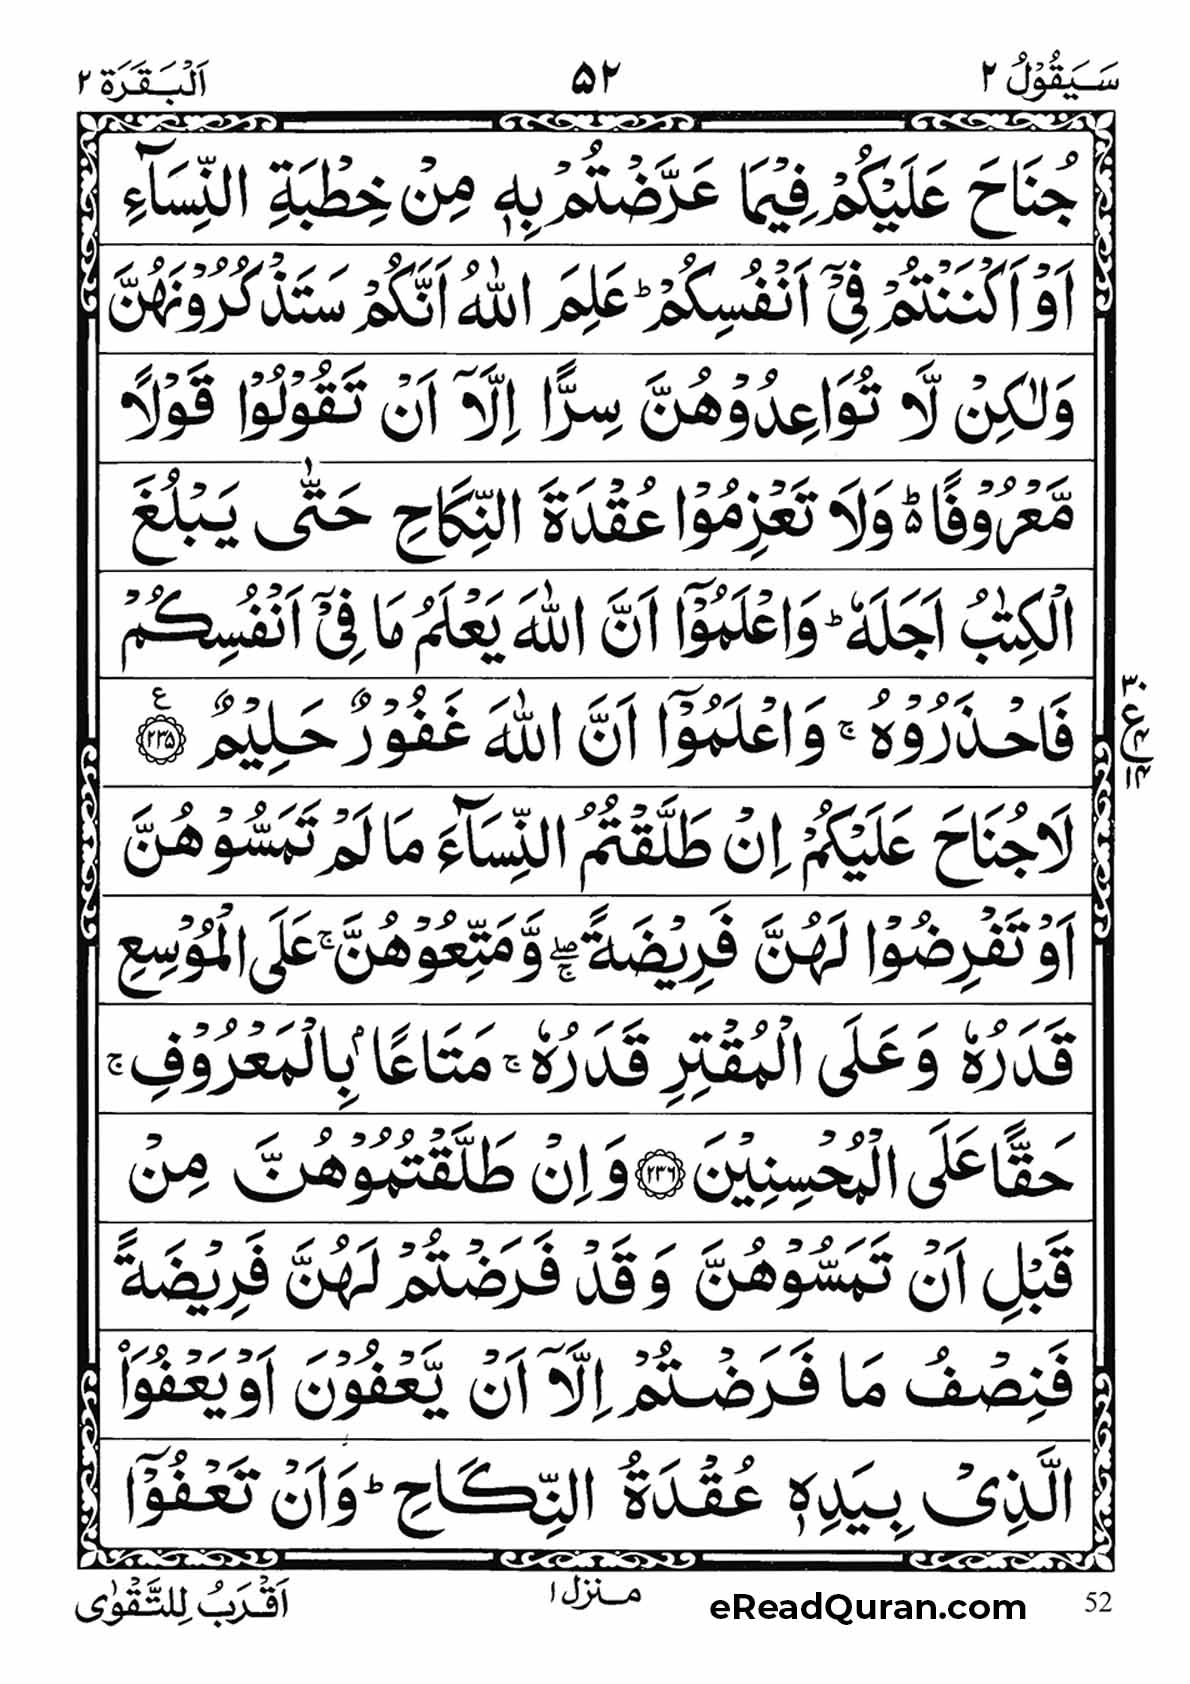 سَيَقُوْلُ ٢
٥٢
اَلْبَقَرَة ٢
جُنَاحَ عَلَيْكُمْ فِيْمَا عَرَّضْتُمْ بِهٖ مِنْ خِطْبَةِ النِّسَآءِ
اَوْ اَكْنَنْتُمْ فِيْٓ اَنْفُسِكُمْ ؕ عَلِمَ اللّٰهُ اَنَّكُمْ سَتَذْكُرُوْنَهُنَّ
وَلٰكِنْ لَّا تُوَاعِدُوْهُنَّ سِرًّا اِلَّآ اَنْ تَقُوْلُوْا قَوْلًا
مَّعْرُوْفًا ؕ۬ وَلَا تَعْزِمُوْا عُقْدَةَ النِّكَاحِ حَتّٰى يَبْلُغَ
الْكِتٰبُ اَجَلَهٗ ؕ وَاعْلَمُوْٓا اَنَّ اللّٰهَ يَعْلَمُ مَا فِيْٓ اَنْفُسِكُمْ
فَاحْذَرُوْهُ ۚ وَاعْلَمُوْٓا اَنَّ اللّٰهَ غَفُوْرٌ حَلِيْمٌ ٢٣٥ ع
٣٠ ع ١٤
لَا جُنَاحَ عَلَيْكُمْ اِنْ طَلَّقْتُمُ النِّسَآءَ مَا لَمْ تَمَسُّوْهُنَّ
اَوْ تَفْرِضُوْا لَهُنَّ فَرِيْضَةً ۖۚ وَّمَتِّعُوْهُنَّ ۚ عَلَى الْمُوْسِعِ
قَدَرُهٗ وَعَلَى الْمُقْتِرِ قَدَرُهٗ ۚ مَتَاعًاۢ بِالْمَعْرُوْفِ ۚ
حَقًّا عَلَى الْمُحْسِنِيْنَ ٢٣٦ وَاِنْ طَلَّقْتُمُوْهُنَّ مِنْ
قَبْلِ اَنْ تَمَسُّوْهُنَّ وَقَدْ فَرَضْتُمْ لَهُنَّ فَرِيْضَةً
فَنِصْفُ مَا فَرَضْتُمْ اِلَّآ اَنْ يَّعْفُوْنَ اَوْ يَعْفُوَا
الَّذِيْ بِيَدِهٖ عُقْدَةُ النِّكَاحِ ؕ وَاَنْ تَعْفُوْٓا
اَقْرَبُ لِلتَّقْوٰى
منزل ١
eReadQuran.com
52